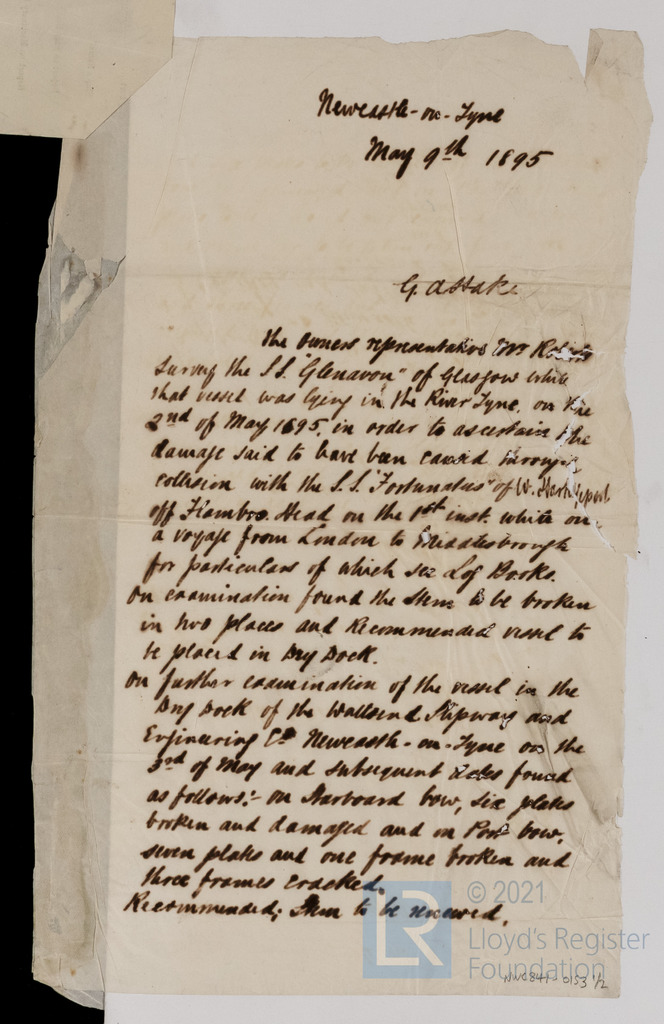 Newcastle-on-Tyne
May 9th 1895
G. A. Hake
the owners representative Mr
survey the S.S. "Glenavon" of Glasgow while
that vessel was lying in the River Tyne, on the
2nd of May 1895, in order to ascertain the
damage said to have been caused through
collision with the S.S. "Fortunatus" of W. Hartlepool
off Flambro. Head on the 1st inst. while on
a voyage from London to Middlesbrough
for particulars of which see Log Books.
On examination found the Stem to be broken
in two places and Recommended vessel to
be placed in Dry Dock.
On further examination of the vessel in the
Dry Dock of the Wallsend Slipway and
Engineering Co Newcastle-on-Tyne on the
3rd of May and subsequent dates found
as follows:- on Starboard bow, six plates
broken and damaged and on Port bow,
seven plates and one frame broken and
three frames cracked.
Recommended; Stem to be renewed.
LR © 2021
Lloyd's Register
Foundation
NWC841-0153 1/2